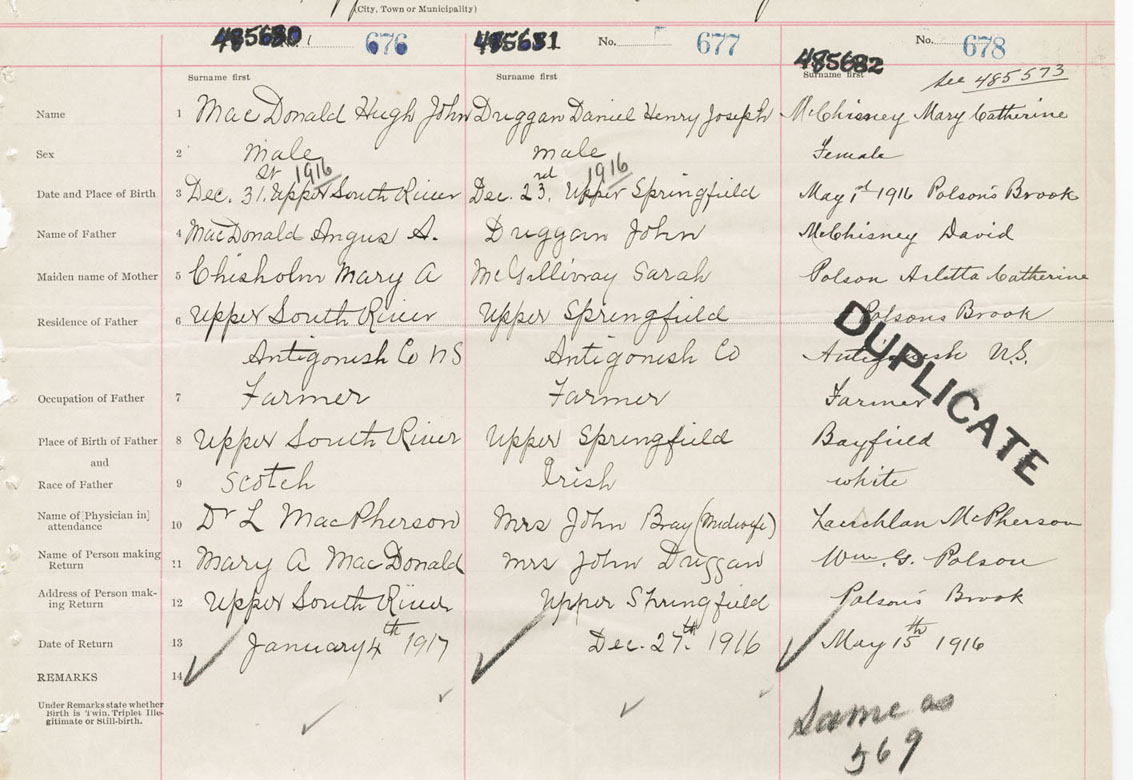 (City, Town or Municipality)
485680 676
485681 No. 677
485682 No. 678
Surname first Surname first Surname first See 485573
Name 1 MacDonald Hugh John Duggan Daniel Henry Joseph McChisney Mary Catherine
Sex 2 Male Male Female
Date and Place of Birth 3 Dec. 31st 1916 Upper South River Dec. 23rd, 1916 Upper Springfield May 1st 1916 Polson's Brook
Name of Father 4 MacDonald Angus A. Duggan John McChisney David
Maiden name of Mother 5 Chisholm Mary A McGillivray Sarah Polson Arletta Catherine
Residence of Father 6 Upper South River Upper Springfield Polsons Brook
Antigonish Co NS Antigonish Co Antigonish N.S.
DUPLICATE
Occupation of Father 7 Farmer Farmer Farmer
Place of Birth of Father 8 Upper South River Upper Springfield Bayfield
and
Race of Father 9 Scotch Irish white
Name of [Physician in] attendance 10 Dr L MacPherson Mrs John Bray (Midwife) Lauchlan McPherson
Name of Person making Return 11 Mary A MacDonald Mrs John Duggan Wm. G. Polson
Address of Person mak-ing Return 12 Upper South River Upper Springfield Polson's Brook
Date of Return 13 January 4th 1917 Dec. 27th. 1916 May 15th 1916
REMARKS 14
Under Remarks state whether
Birth is Twin, Triplet Ille-
gitimate or Still-birth.
Same as
569